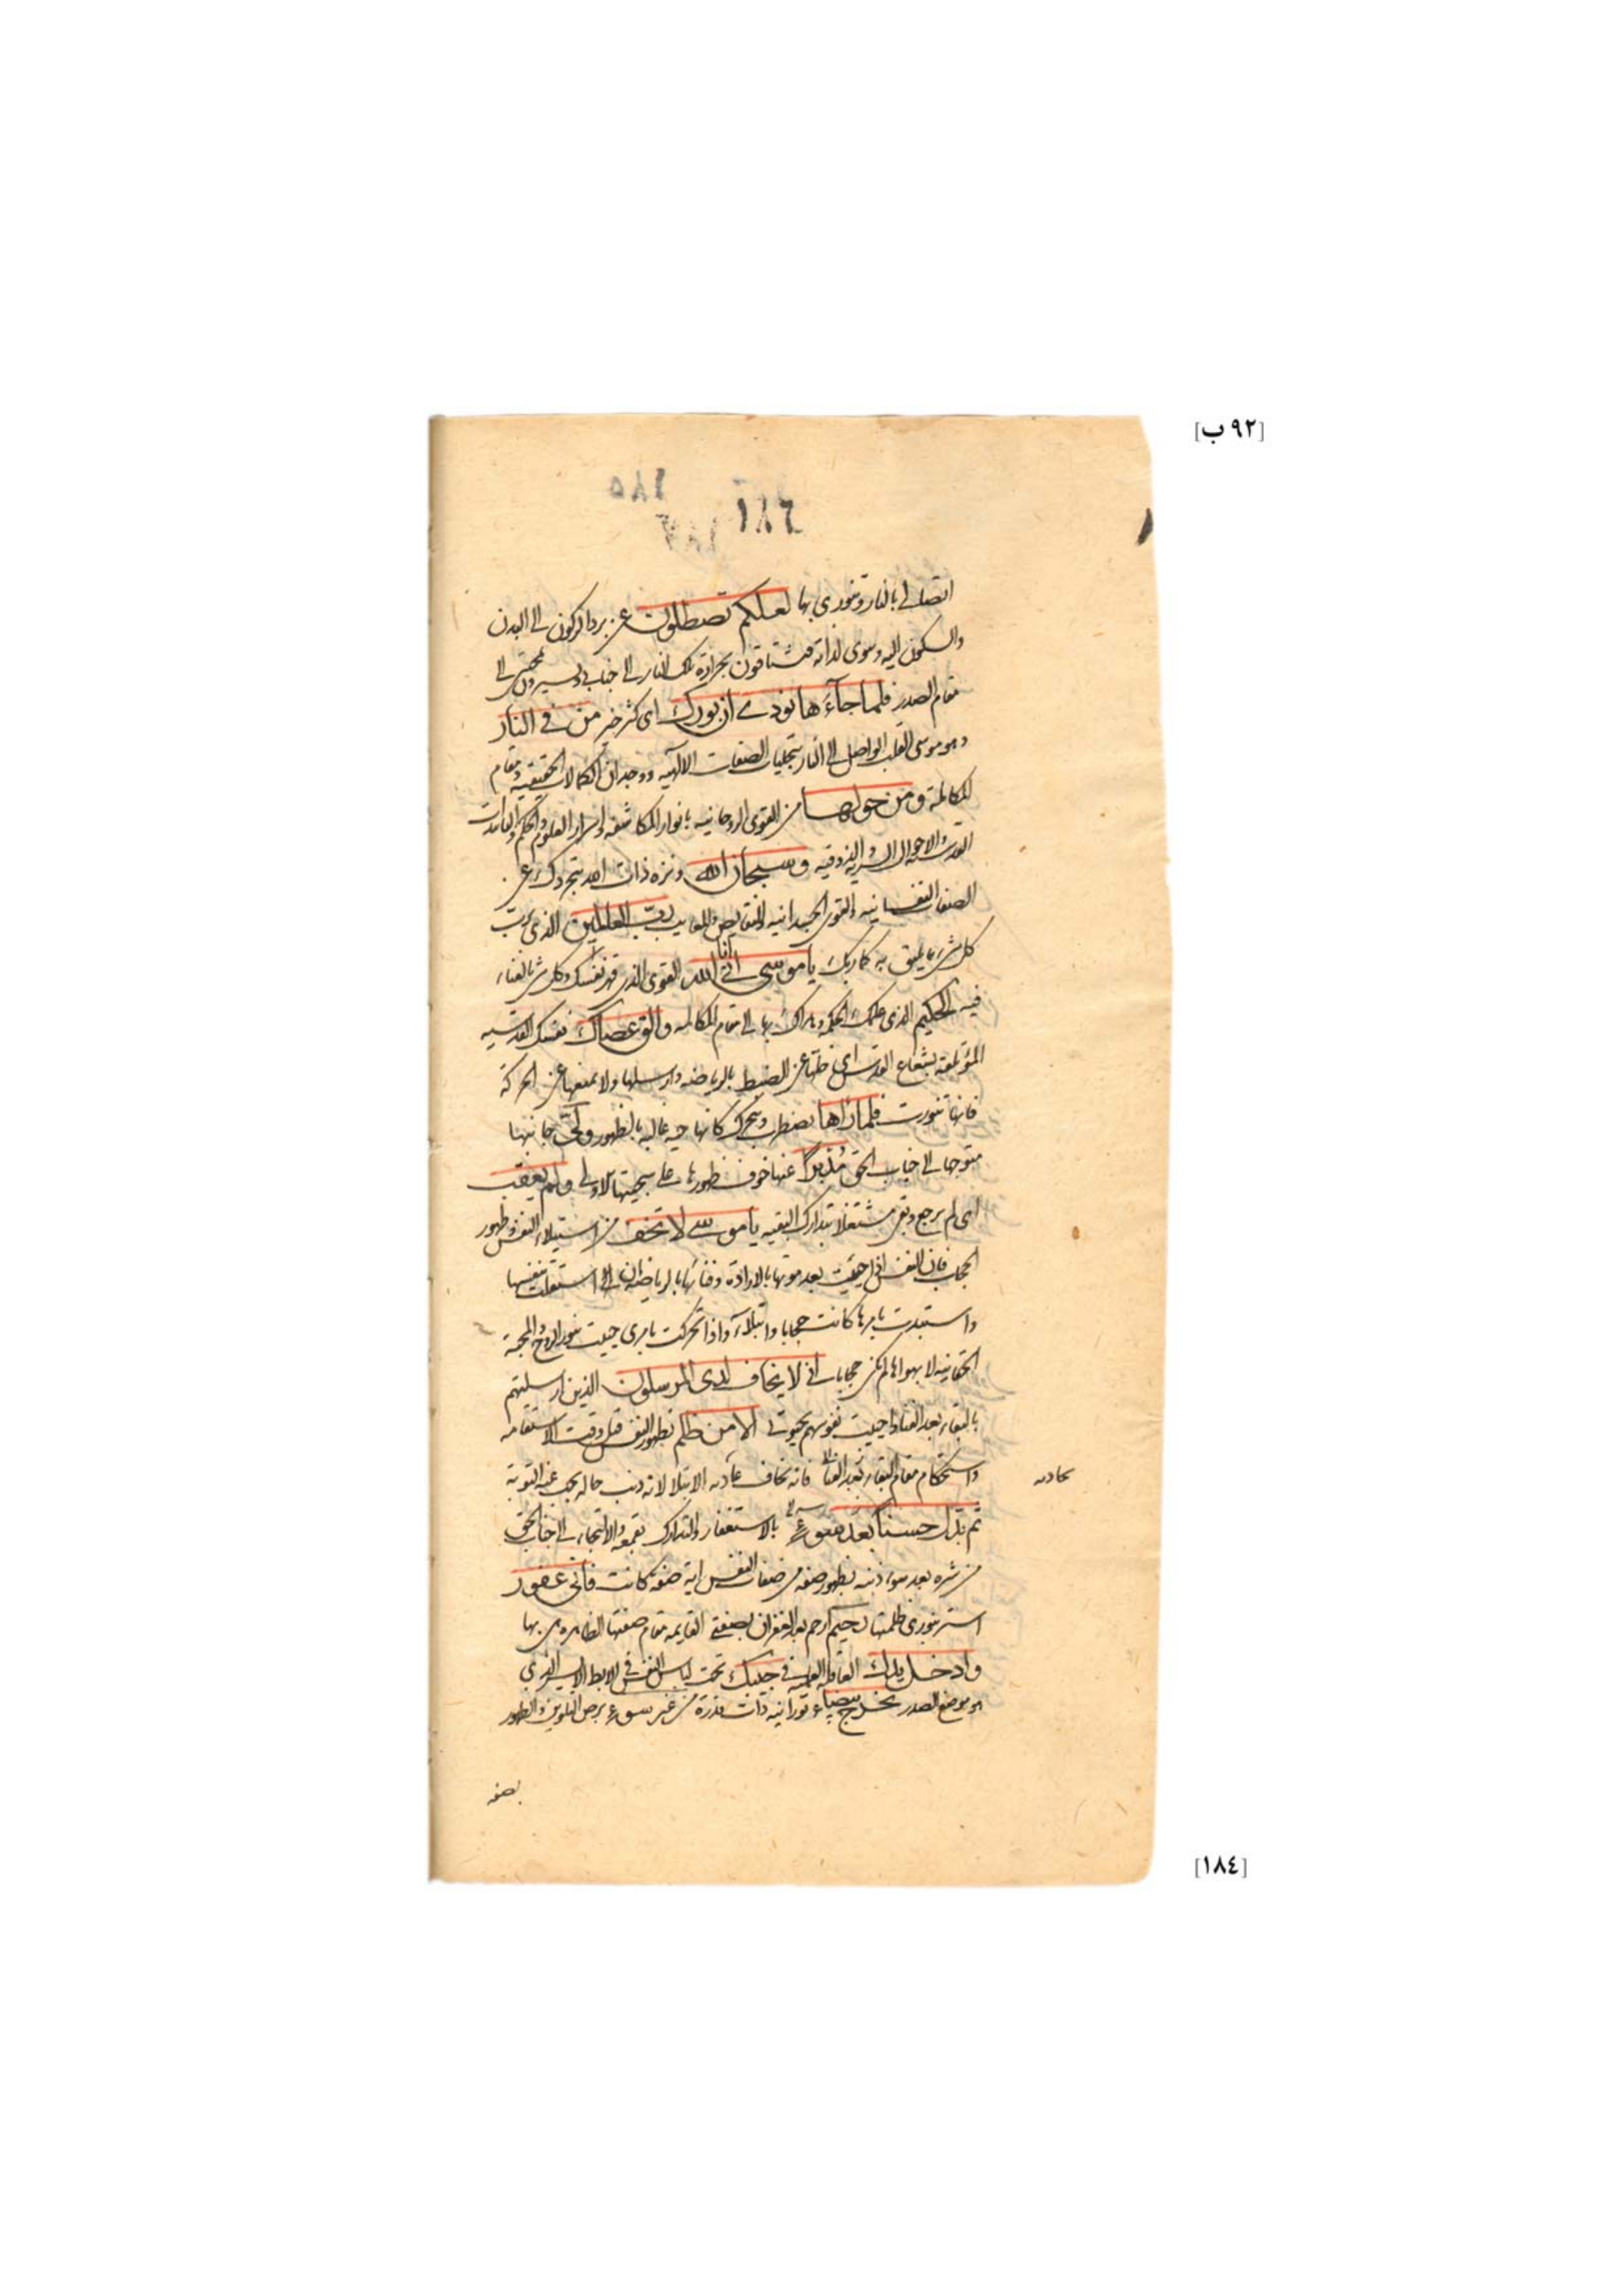 [٩٢ ب]
١٨٥
اتصالي بالنار وتنوري بها لعلكم تصطلون عن برد الركون الى البدن
والسكون اليه وهوى لذاته فتشتاقون بحرارة تلك النار الى جنابي وتسيرون الى
مقام الصدر فلما جاءها نودي ان بورك اى كثر خير من في النار
وهو موسى القلب الواصل الى النار بتجليات الصفات الالهيه ووجدان الكمالات الحقيقيه ومقام
المكالمة ومن حولها من القوى الروحانيه بانوار المكاشفه واسرار العلوم والحكم والتاييدات
القدسيه والاحوال السريه والذوقيه وسبحان الله ونزه ذات الله بتجردك عن
الصفات النفسانيه والقوى الجسدانيه والنقايص والمعايب رب العالمين الذي يرب
كل شئ بما يليق به كما ربك يا موسى اني انا الله القوى الذي قهر نفسك وكل شئ بالفناء
فيه الحكيم الذي علمك الحكمه وهداك بها الى مقام المكالمه والق عصاك نفسك القدسيه
المؤتلفة بشعاع القدس اى خلها عن الضبط بالرياضه وارسلها ولا تمنعها عن الحركة
فانها تنورت فلما راها تضطرب وتتحرك كانها حيه غالبه بالظهور ولى جانبها
متوجها الى جناب الحق مدبرا عنها خوف ظهورها على سجيتها الاولى ولم يعقب
اى لم يرجع وبقى مشتغلا بتدارك البقيه يا موسى لا تخف من استيلاء النفس وظهور
الحجاب فان النفس اذا حييت بعد موتها بالارادة وفنائها بالرياضه ان استقلت بنفسها
واستبدت بامرها كانت حجابا وابتلاء واذا تحركت بامرى حييت بنور الروح والمحبة
الحقانيه لا بهواها لم تكن حجابا اني لا يخاف لدى المرسلون الذين ارسلتهم
بالبقاء بعد الفناء واحييت نفوسهم بحيوتي الا من ظلم بظهور النفس قبل وقت الاستقامه
واستحكام مقام البقاء بعد الفناء فانه يخاف عاديه الابتلا لانه ذنب حاله يجب عنه التوبة
ثم بدل حسنا بعد سوء بالاستغفار والتدارك بقمعه والالتجاء الى جناب الحق
من شره بعد سوء ذنبه بظهور صفه من صفات النفس اية صفه كانت فاني غفور
استر بنوري ظلمتها رحيم ارحم بعد الغفران بصفتي القايمه مقام صفتها الظاهره هي بها
وادخل يدك العاقله العمليه في جيبك تحت لباس النفس في الابط الايسر الذي
هو موضع الصدر تخرج بيضاء نورانيه ذات قدرة من غير سوء برص التلوين والظهور
بصفه
[١٨٤]